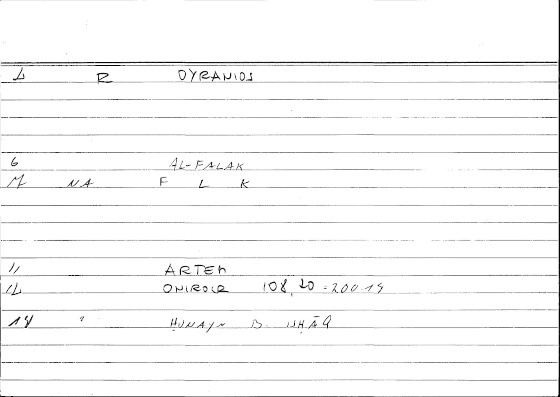 R OYRANIOS
6 AL-FALAK
M NA F L K
11 ARTEM
12 ONIROCR 108,20 = 200.19
14 " ḤUNAYN B. ISḤĀQ